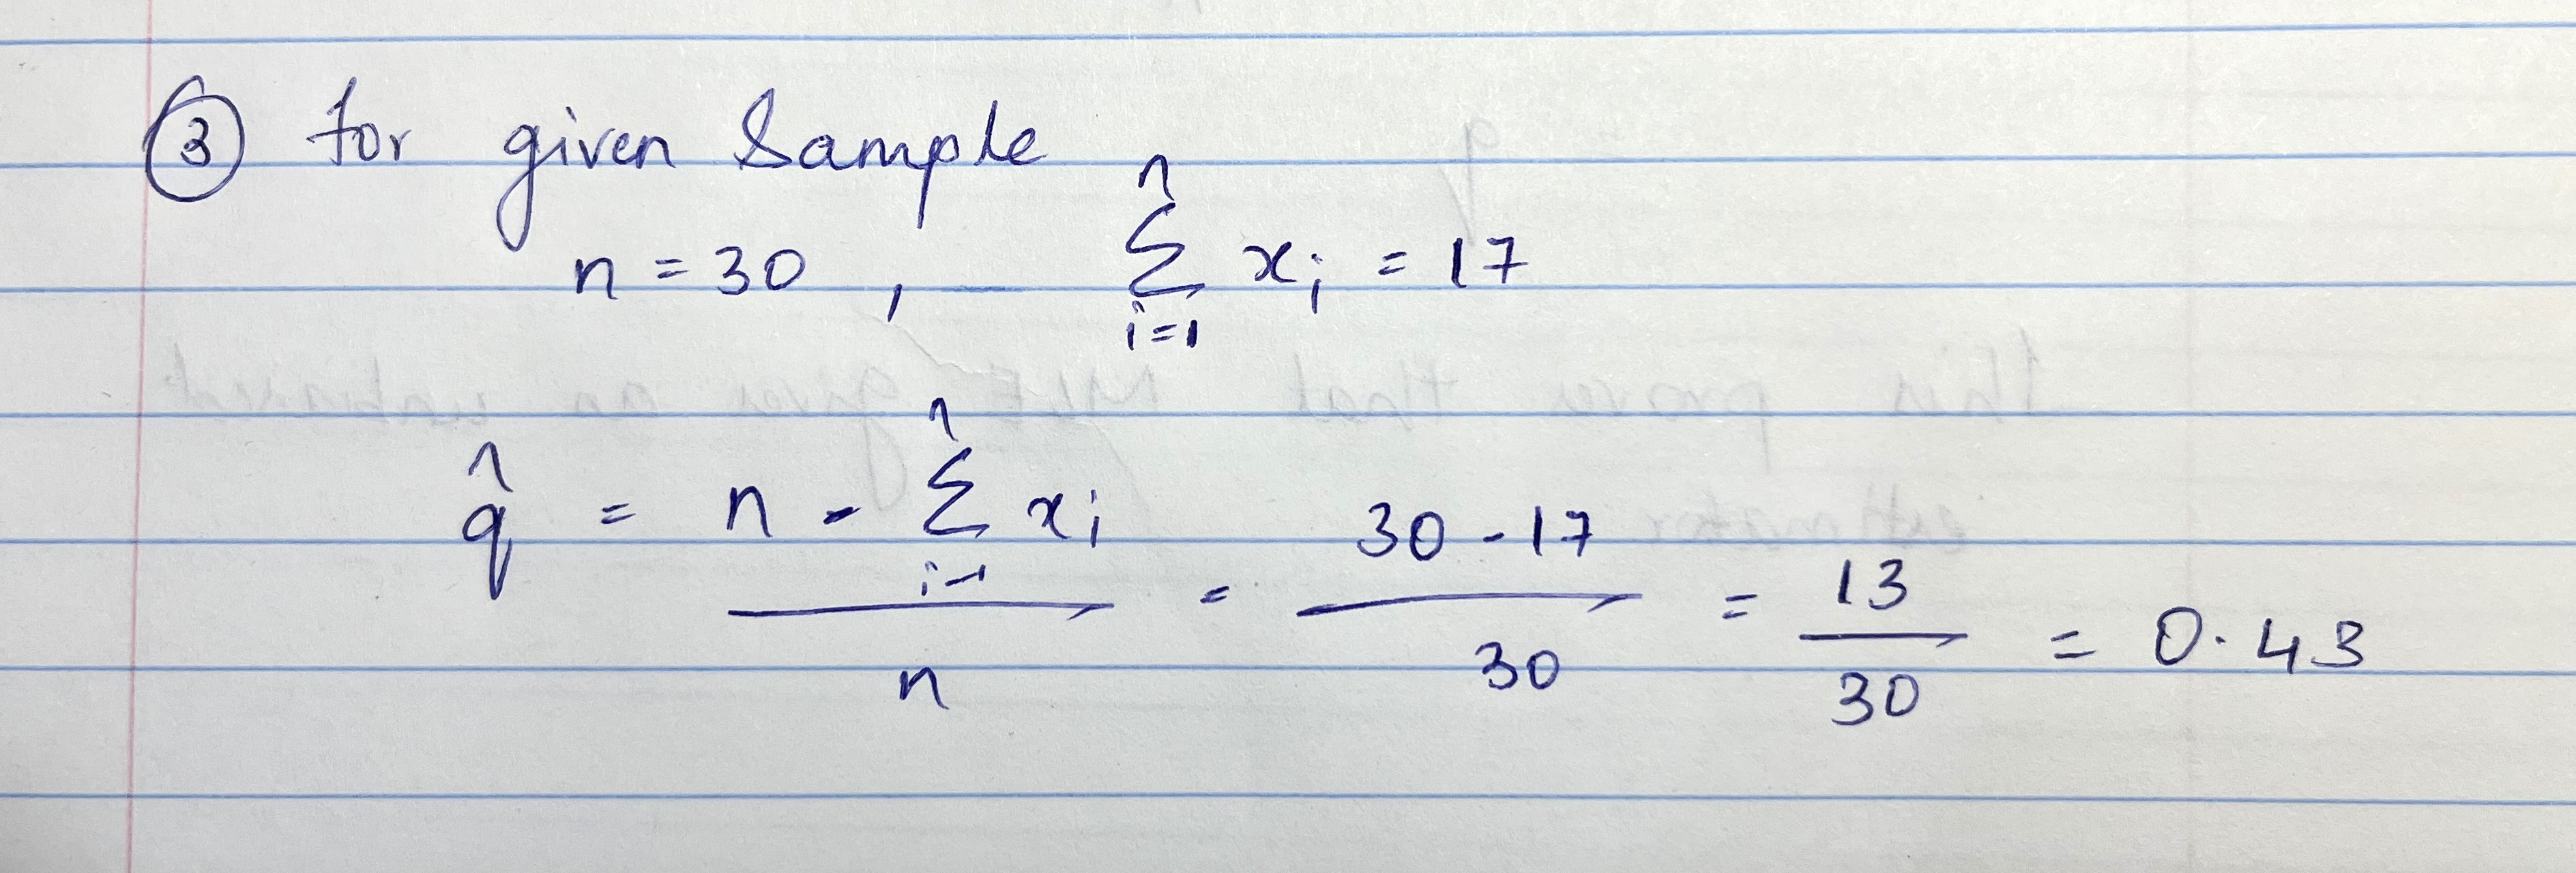 ③ for given Sample
n = 30 , n∑i=1 xi = 17
q̂ = (n - n∑i=1 xi)/n = (30 - 17)/30 = 13/30 = 0.43